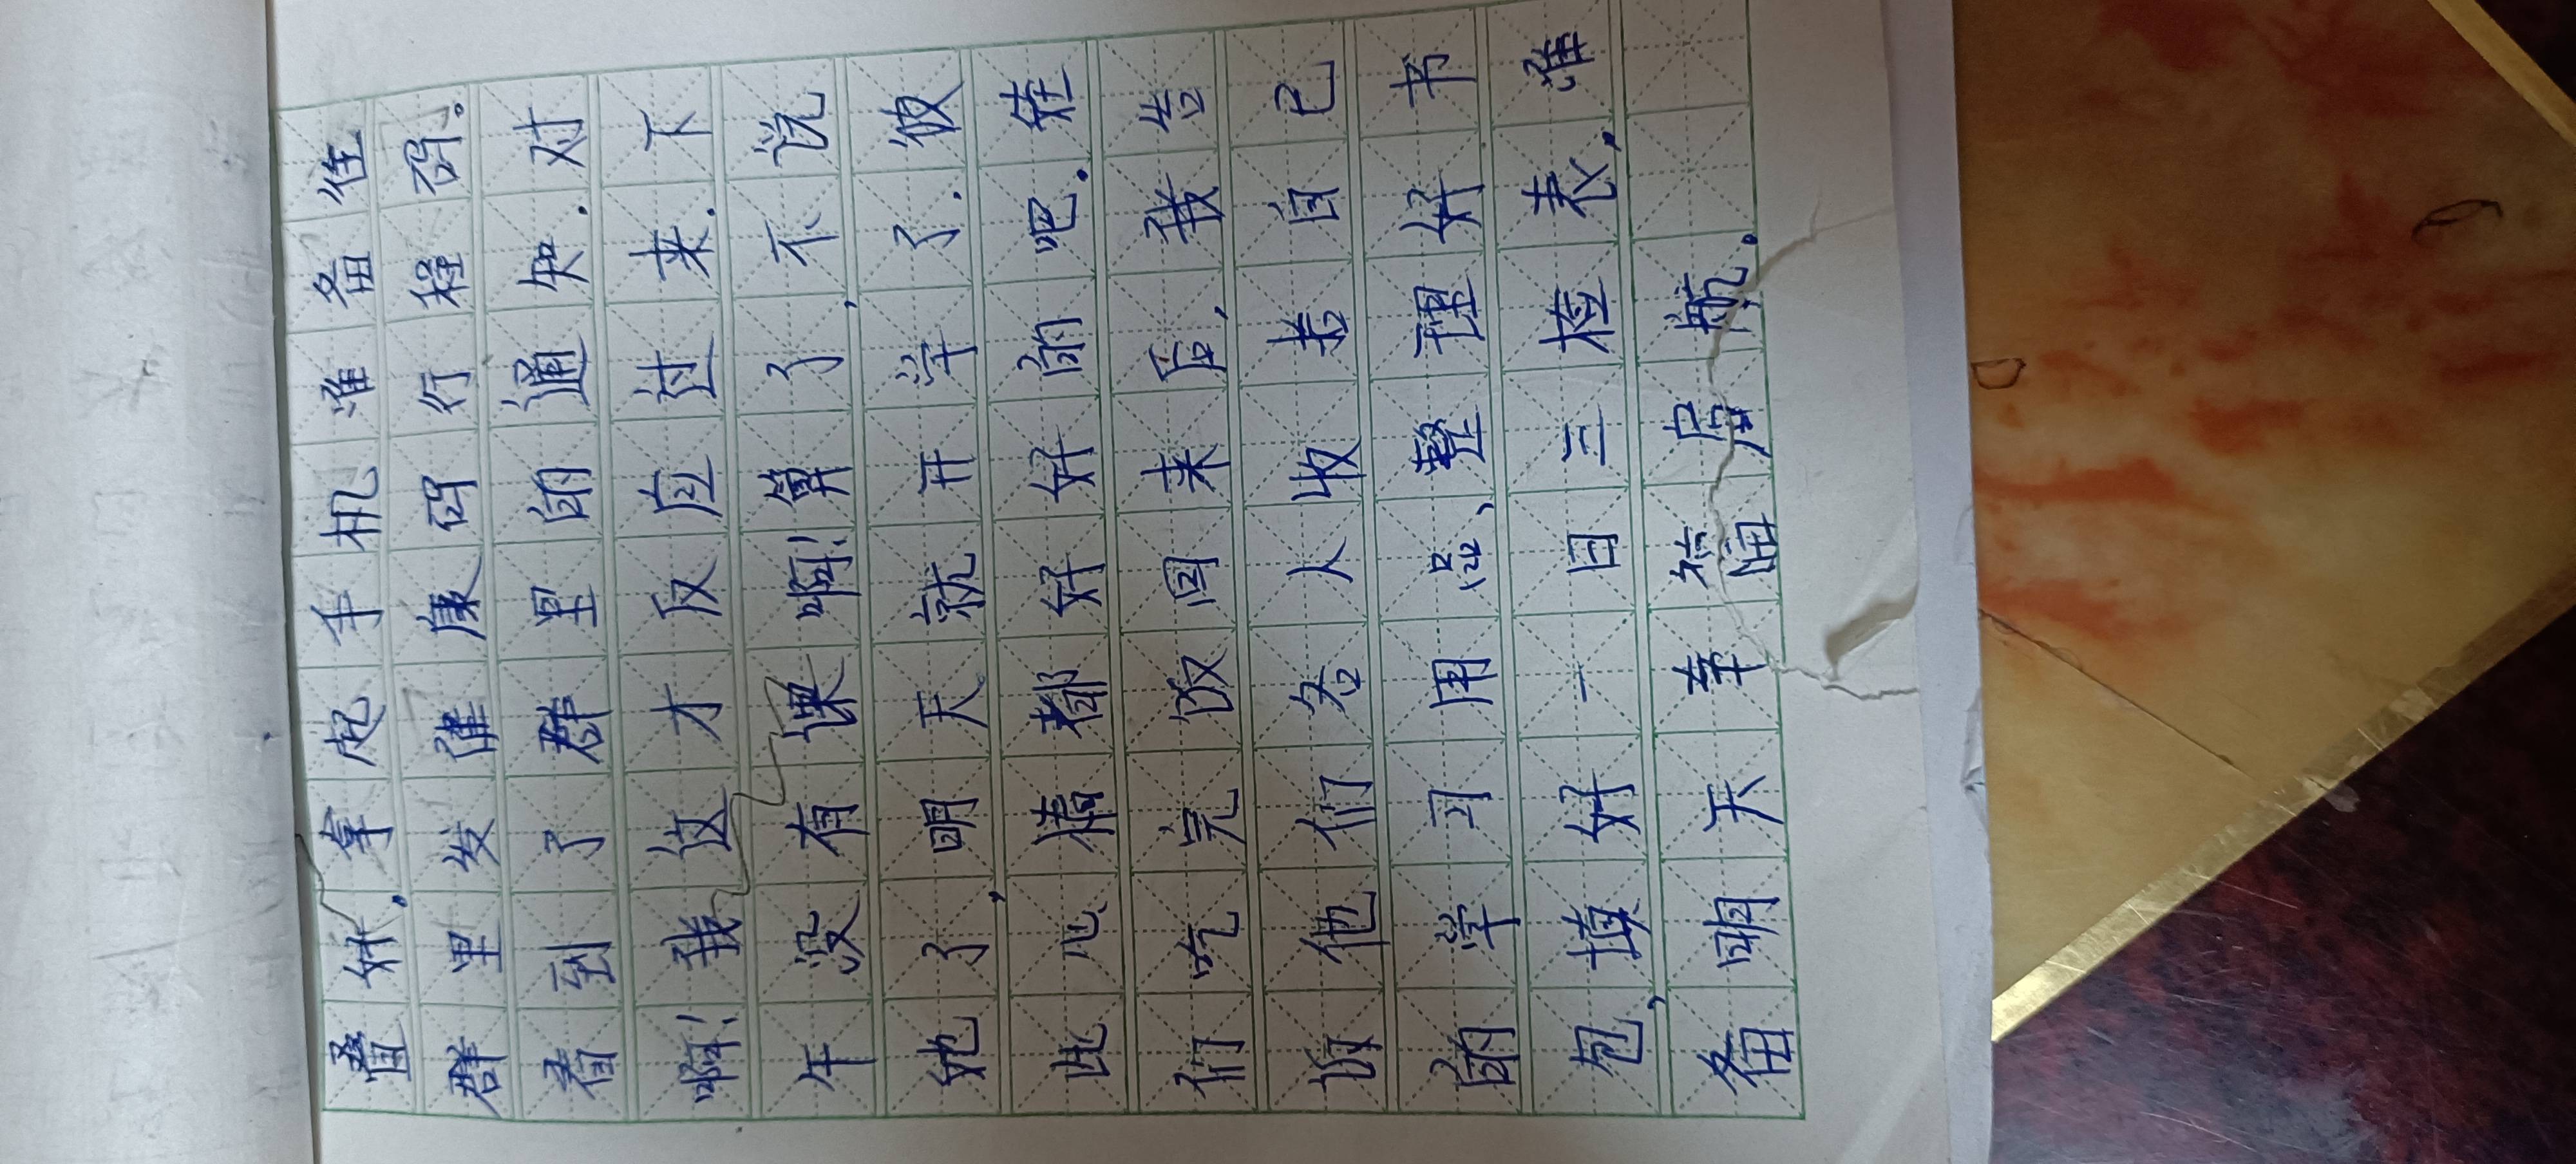 叠好,拿起手机准备往
群里发健康码行程码。
看到了群里的通知.对
啊!我这才反应过来.下
午没有课啊!算了,不说
她了,明天就开学了.彼
此心情都好好的吧.娃
们吃完饭回来后,我告
诉他们各人收拾自己
的学习用品、整理好书
包,填好一日三检表,准
备明天幸福启航.